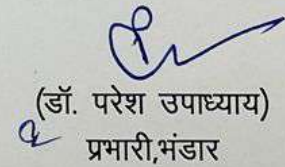 (डॉ. परेश उपाध्याय)
प्रभारी,भंडार